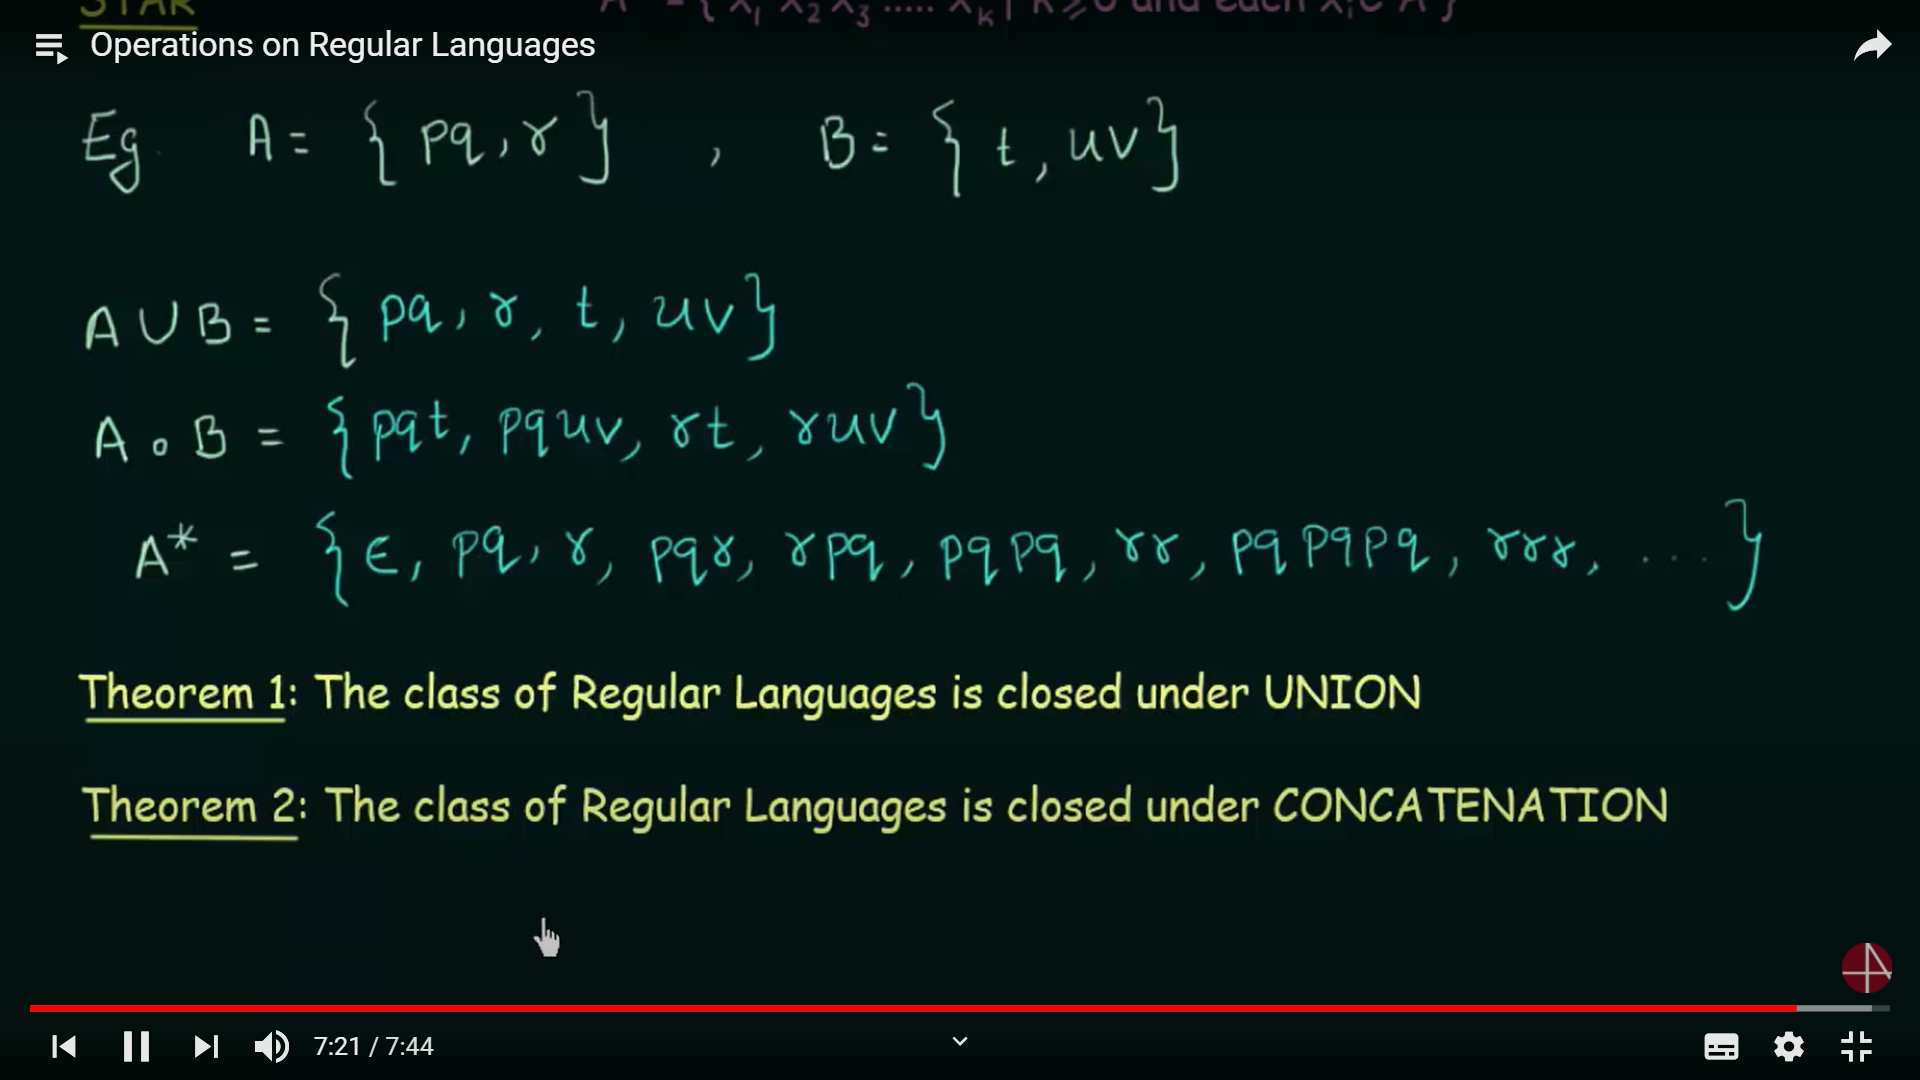 STAR A* = { x₁ x₂ x₃ ..... xₖ | k ⩾ 0 and each xᵢ ∈ A }
Operations on Regular Languages
Eg. A = { pq, r } , B = { t, uv }
A ∪ B = { pq, r, t, uv }
A ∘ B = { pqt, pquv, rt, ruv }
A* = { ϵ, pq, r, pqr, rpq, pqpq, rr, pqpqpq, rrr, .... }
Theorem 1: The class of Regular Languages is closed under UNION
Theorem 2: The class of Regular Languages is closed under CONCATENATION
7:21 / 7:44